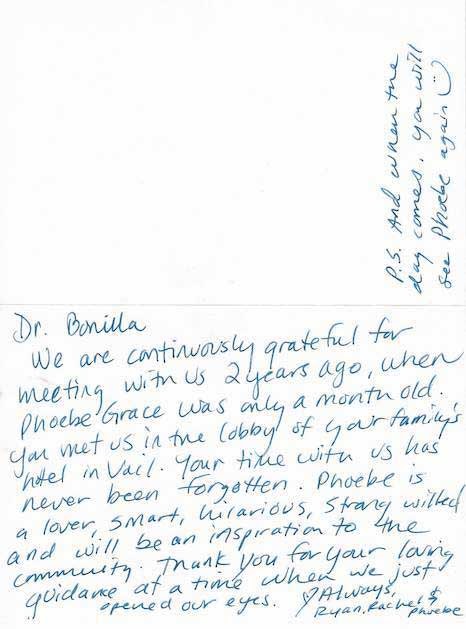 Dr. Bonilla
We are continuously grateful for
meeting with us 2 years ago, when
Phoebe Grace was only a month old.
You met us in the lobby of your family's
hotel in Vail. Your time with us has
never been forgotten. Phoebe is
a lover, smart, hilarious, strong willed
and will be an inspiration to the
community. Thank you for your loving
guidance at a time when we just
opened our eyes. ♡ Always,
Ryan, Rachel, &
Phoebe
P.S. And when the
day comes, you will
see Phoebe again :)